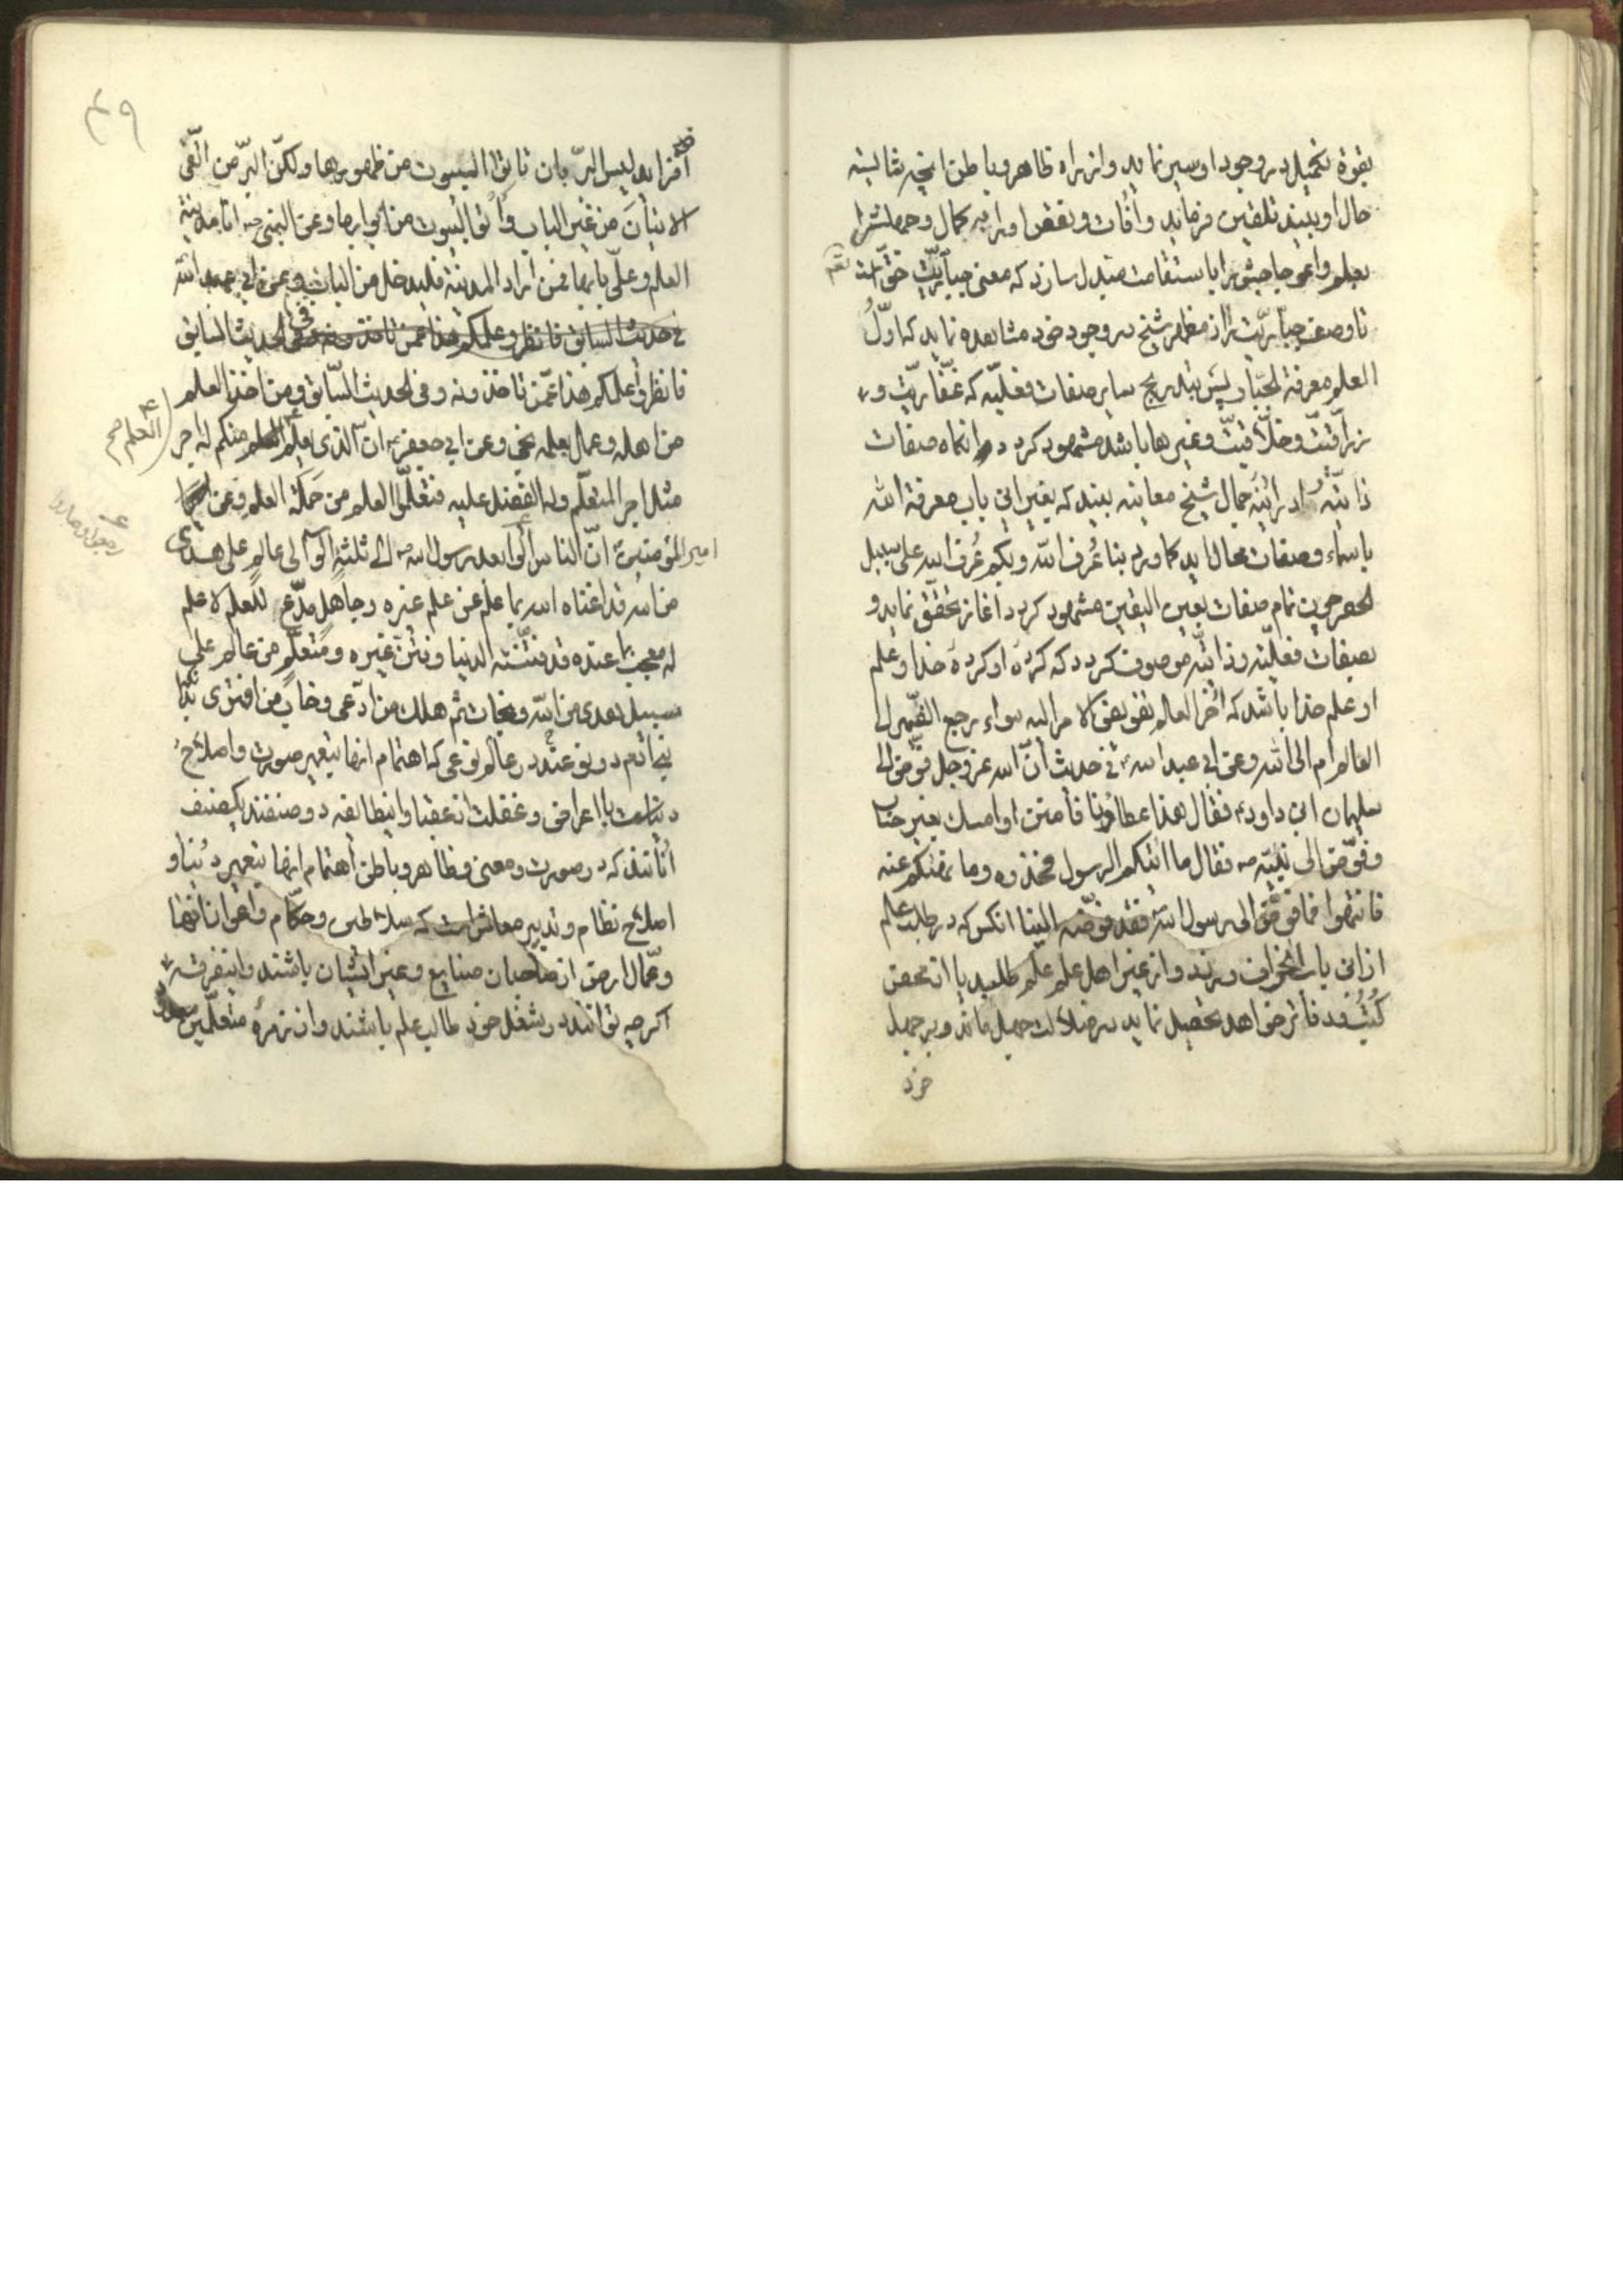 بقوة تکمیل در وجود او سیر نماید و از راه ظاهر و باطن آنچه شایسته
حال او بیند تلقین فرماید و آفات و نقص او را به کمال و جهلش را
بعلم و اعوجاجش را باستقامت متبدل سازد که معنی جباریّت حق است
تا وصف جباریّت را از مظهر شیخ در وجود خود مشاهده نماید که اوّلُ
العلم معرفة الجبّار و پس بتدریج سایر صفات فعلیّه که غفّاریّت و
رزاقیّت و خلّاقیّت و غیرها باشد مشهود گردد و آنگاه صفات
ذاتیّه را در آینهٔ جمال شیخ معاینه بیند که بغیر این باب معرفة الله
باسماء و صفات محال اید کما ورد بنا عُرف الله و بکم عُرف الله علی سبیل
الحصر چون تمام صفات بعین الیقین مشهود کرد آغاز تحقق نماید و
بصفات فعلیّه و ذاتیّه موصوف گردد که کردهٔ او کردهٔ خدا و علم
او علم خدا باشد که آخر العلم تفویض الامر الیه سواء یرجع الضمیر الی
العالم ام الی الله و عن ابی عبد الله فی حدیث انّ الله عزّ وجل فوّض الی
سلیمان ابن داود فقال هذا عطاؤنا فامنن او امسك بغیر حساب
و فوّض الی نبیّه ص فقال ما اتیکم الرسول فخذوه و ما نهیکم عنه
فانتهوا فما فوّض الی رسول الله فقد فوّضه الینا انکس که در طلب علم
از این باب انحراف ورزد و از غیر اهل علم علم طلبد یا از صحف
کتُب دفاتر خواهد تحصیل نماید در ضلالت جهل ماند و بر جهل
خود
۴۹
افزاید لیس البرّ بان تاتوا البیوت من ظهورها ولکنّ البرّ من اتّقی
الاتیانَ من غیر الباب وأتوا البیوت من ابوابها و عن النبی ص انا مدینة
العلم و علیّ بابها فمن اراد المدینة فلیدخل من الباب و عن ابی عبد الله
فی حدیث السابق فانظروا علمکم هذا عمن تاخذونه و فی الحدیث السابق
فانظروا علمکم هذا عمّن تاخذونه و فی الحدیث السّابق و من اخذ العلم
من اهله و عمل بعلمه نجی و عن ابی جعفر انّ الذی یعلّم العلم منکم له اجر
العلم صح
مثل اجر المتعلّم وله الفضل علیه فتعلّموا العلم من حَمَلَة العلم و عن
امیر المؤمنین انّ الناس آلوا بعد رسول الله ص الی ثلثة آلوا الی عالم علی هدی
من الله قد اغناه الله بما علم عن علم غیره و جاهل مدّعٍ للعلم لا علم
له معجب بما عنده قد فتنته الدنیا و فتن غیره و متعلّم من عالم علی
سبیل هدی من الله و نجات ثم هلك من ادّعی و خاب من افتری
دو نوعند در عالم نوعی که اهتمام انها بتعمیر صورت و اصلاحُ
دنیاست با اعراض و غفلت از عقبا و اینطایفه دو صنفند یکصنف
انانند که در صورت و معنی و ظاهر و باطن اهتمام انها بتعمیر دُنیا و
اصلاح نظام و تدبیر معاش است که سلاطین و حکّام و اعوان انها
و عمّال ارض از صاحبان صنایع و غیر ایشان باشند و اینفرقه
اگر چه توانند در شغل خود طالب علم باشند و از زمرهٔ متعلّمین